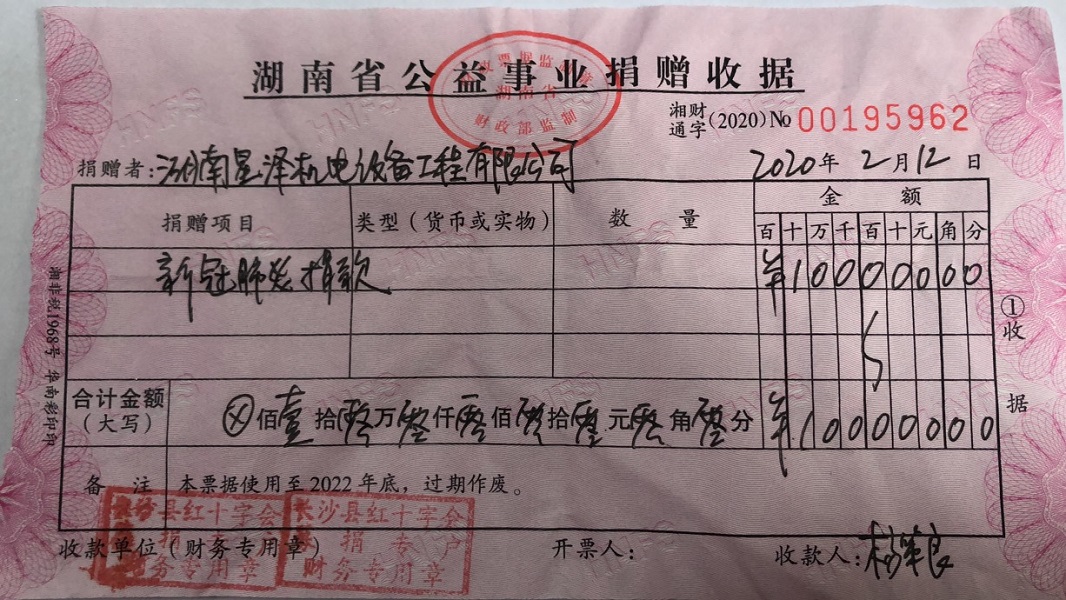 湖南省公益事业捐赠收据
湖南省
财政部监制
湘财通字(2020)№ 00195962
捐赠者:湖南星泽机电设备工程有限公司 2020年2月12日
捐赠项目 类型(货币或实物) 数量 金额
百十万千百十元角分
新冠肺炎捐款 ¥10000000
合计金额(大写) ⊗佰壹拾零万零仟零佰零拾零元零角零分 ¥10000000
备注 本票据使用至2022年底,过期作废。
长沙县红十字会 长沙县红十字会
募捐专户
财务专用章 财务专用章
收款单位(财务专用章) 开票人: 收款人:
①收据
湘非税1968号 华南彩印印